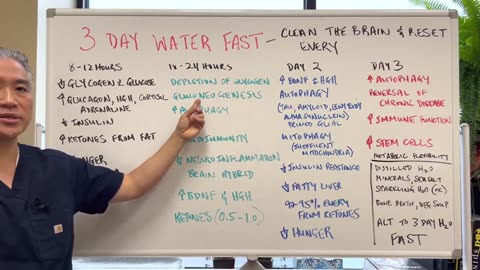 3 DAY WATER FAST - CLEAN THE BRAIN & RESET
EVERY
8-12 HOURS
↓ GLYCOGEN & GLUCOSE
↑ GLUCAGON, HGH, CORTISOL
ADRENALINE
↓ INSULIN
↑ KETONES FROM FAT
HUNGER
24 HOURS
DEPLETION OF GLYCOGEN
GLUCONEOGENESIS
↑ AUTOPHAGY
IMMUNITY
↓ NEUROINFLAMMATION
BRAIN HYBRID
↑ BDNF & HGH
KETONES (0.5-1.0)
DAY 2
↑ BDNF & HGH
AUTOPHAGY
(TAU, AMYLOID, LEWY BODY
ALPHA SYNUCLEIN)
PRIMED GLIAL
MITOPHAGY
(INEFFICIENT
MITOCHONDRIA)
↓ INSULIN RESISTANCE
↓ FATTY LIVER
90-95% ENERGY
FROM KETONES
↓ HUNGER
DAY 3
↑ AUTOPHAGY
REVERSAL OF
CHRONIC DISEASE
↑ IMMUNE FUNCTION
↑ STEM CELLS
METABOLIC FLEXIBILITY
DISTILLED H2O
MINERALS, SEA SALT
SPARKLING H2O (OK)
BONE BROTH, VEG SOUP
ALT TO 3 DAY H2O
FAST